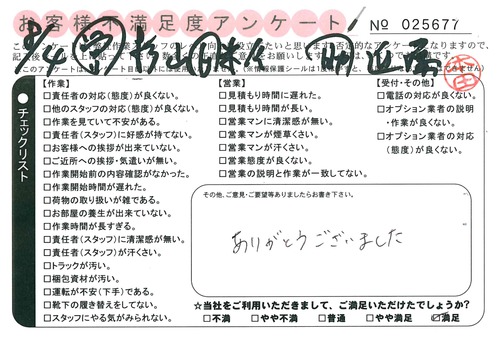 お客様不満足度アンケート
№ 025677
チェックリスト
【作業】
□責任者の対応(態度)が良くない。
□他のスタッフの対応(態度)が良くない。
□作業を見ていて不安がある。
□責任者(スタッフ)に好感が持てない。
□お客様への挨拶が出来ていない。
□ご近所への挨拶・気遣いが無い。
□作業開始前の内容確認がなかった。
□作業開始時間が遅れた。
□荷物の取り扱いが雑である。
□お部屋の養生が出来ていない。
□作業時間が長すぎる。
□責任者(スタッフ)に清潔感が無い。
□責任者(スタッフ)が汗くさい。
□トラックが汚い。
□梱包資材が汚い。
□運転が不安(下手)である。
□靴下の履き替えをしてない。
□スタッフにやる気がみられない。
【営業】
□見積もり時間に遅れた。
□見積もり時間が長い。
□営業マンに清潔感が無い。
□営業マンが煙草くさい。
□営業マンが汗くさい。
□営業の態度が良くない。
□営業の説明と作業が一致してない。
【受付・その他】
□電話の対応が良くない。
□オプション業者の説明
・作業が良くない。
□オプション業者の対応
(態度)が良くない。
その他、ご意見・ご要望等ありましたらお書き下さい。
ありがとうございました
★当社をご利用いただきまして、ご満足いただけたでしょうか?
□不満 □やや不満 □普通 □やや満足 ☑満足